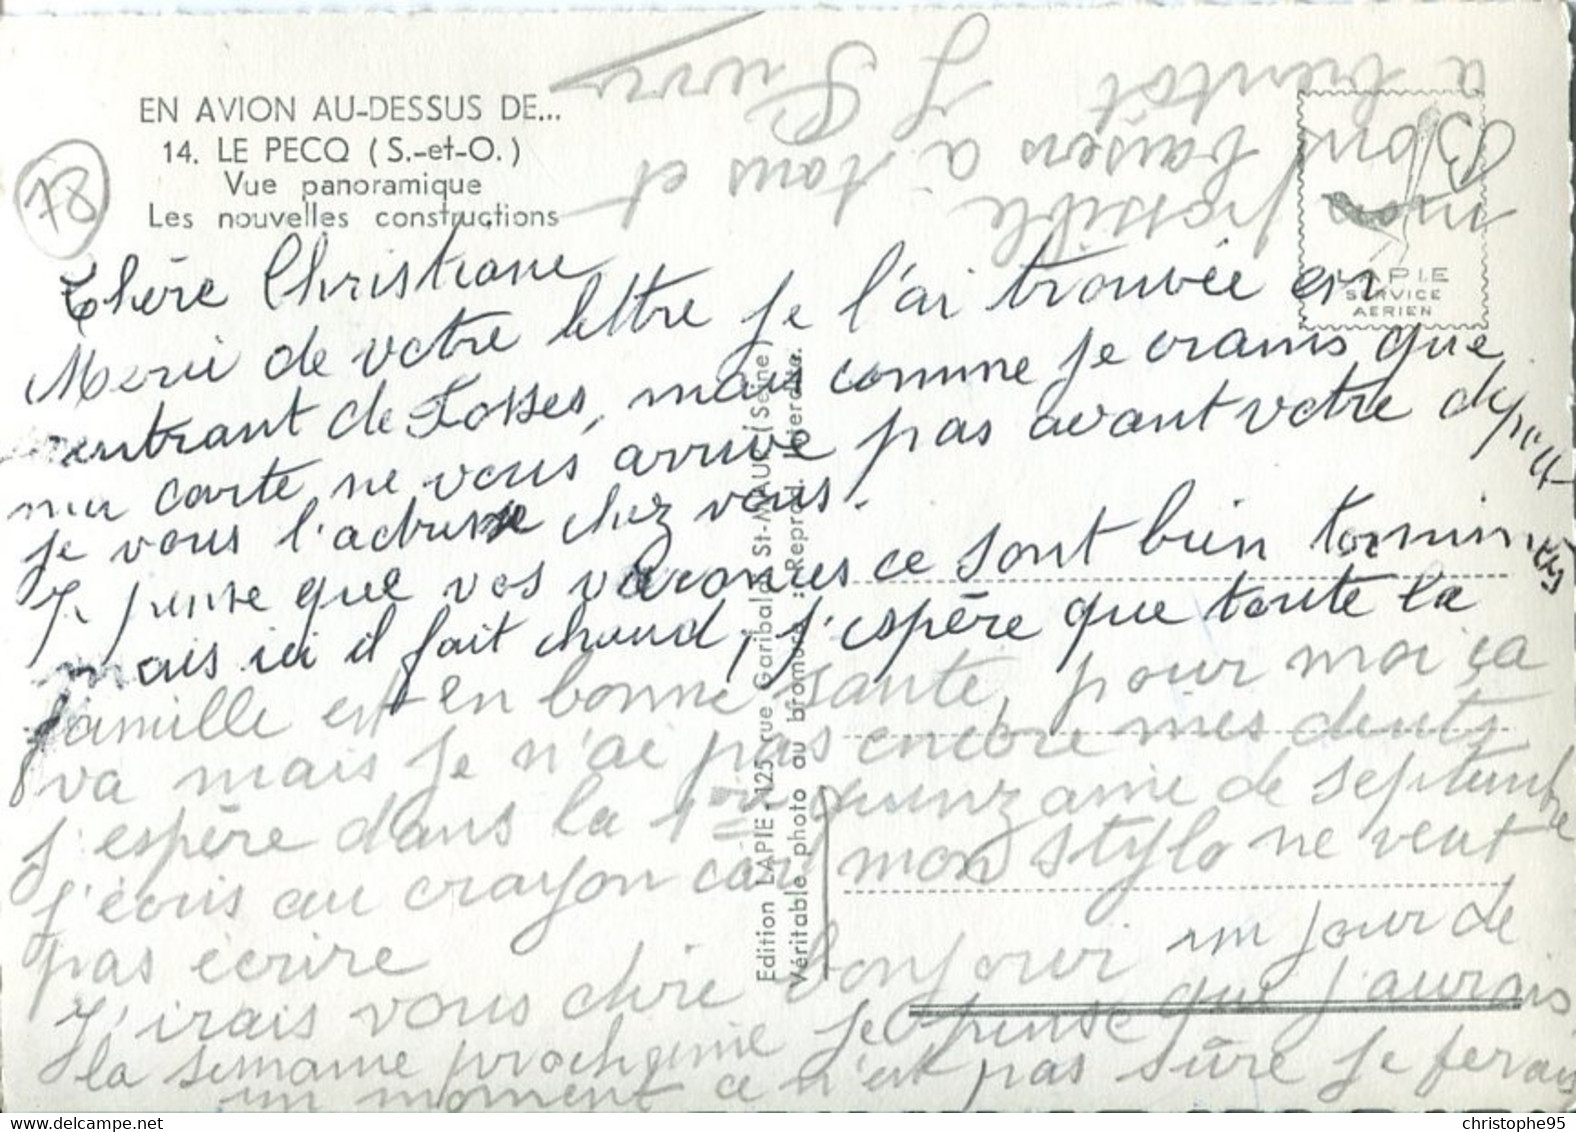 EN AVION AU-DESSUS DE...
14. LE PECQ (S.-et-O.)
Vue panoramique
Les nouvelles constructions
78
LAPIE
SERVICE
AERIEN
Edition LAPIE - 125, rue Garibaldi St-MAUR (Seine)
Véritable photo au bromure : Reprod. Interdite.
Chère Christiane
Merci de votre lettre je l'ai trouvée en
rentrant de Fosses, mais comme je crains que
ma carte ne vous arrive pas avant votre départ
je vous l'adresse chez vous.
Je pense que vos vacances ce sont bien terminées
mais ici il fait chaud, j'espère que toute la
famille est en bonne santé, pour moi ça
va mais je n'ai pas encore mes dents
j'espère dans la 1ère quinzaine de septembre
j'écris au crayon car mon stylo ne veut
pas écrire
J'irais vous dire bonjour un jour de
la semaine prochaine je pense que j'aurais
un moment ce n'est pas sûre je ferais
mon possible
Bons baisers à tous et
a bientôt
christophe95